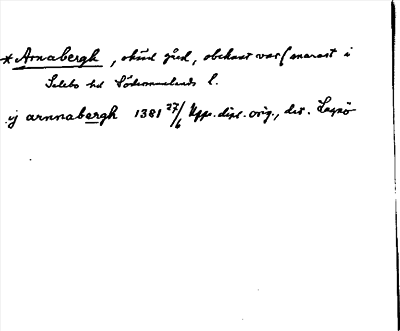 * Arnabergh, okänd gård, obekant var (snarast i
Selebo hd Södermanlands l.
ij arnnabergh 1381 27/6 Upps. dipl. orig., dat.